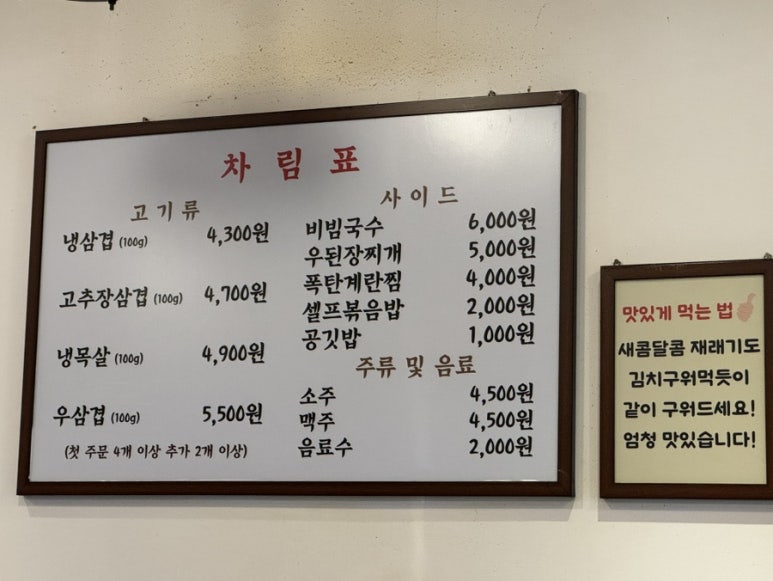 차림표
고기류
냉삼겹 (100g) 4,300원
고추장삼겹 (100g) 4,700원
냉목살 (100g) 4,900원
우삼겹 (100g) 5,500원
(첫 주문 4개 이상 추가 2개 이상)
사이드
비빔국수 6,000원
우된장찌개 5,000원
폭탄계란찜 4,000원
셀프볶음밥 2,000원
공깃밥 1,000원
주류 및 음료
소주 4,500원
맥주 4,500원
음료수 2,000원
맛있게 먹는 법
새콤달콤 재래기도
김치구워먹듯이
같이 구워드세요!
엄청 맛있습니다!